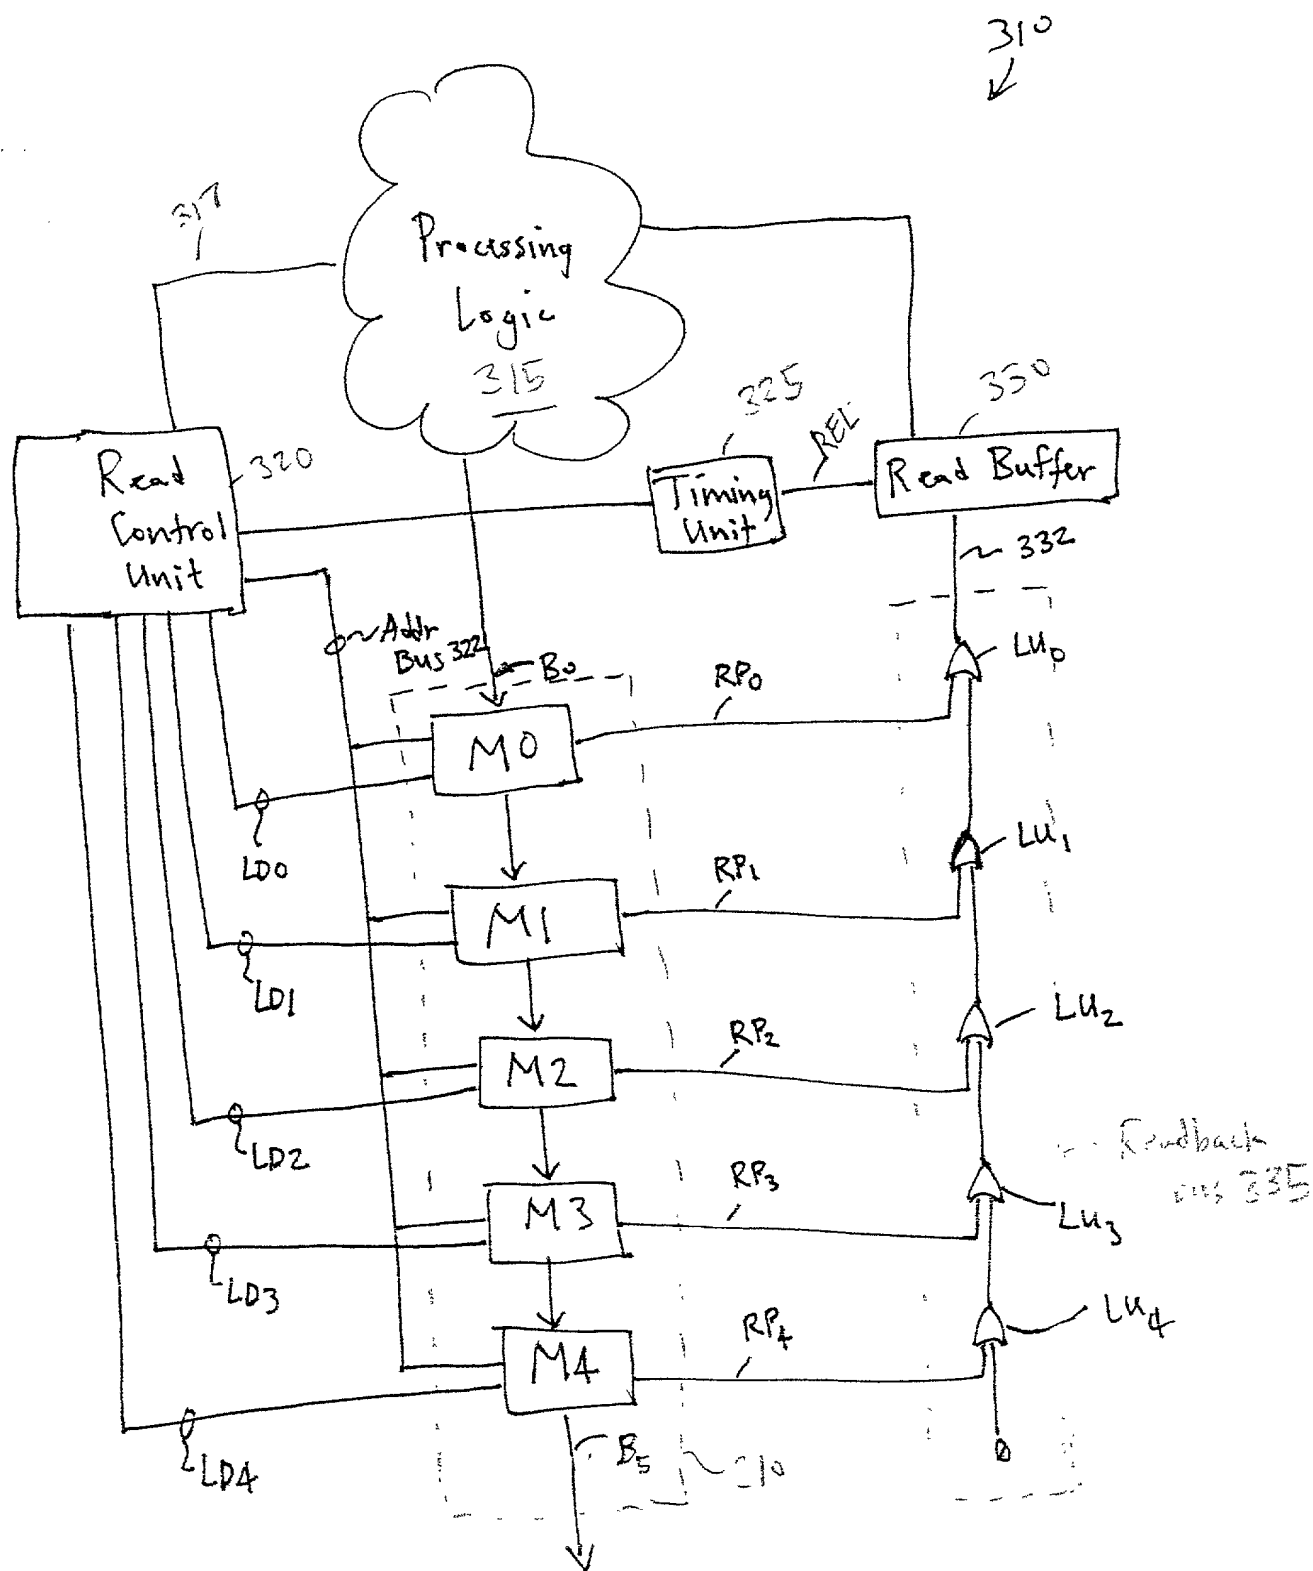 310
317
Processing
Logic
315
325
REL
350
Read
Control
Unit
320
Timing
Unit
Read Buffer
332
Addr
Bus 322
B0
RP0
LU0
M0
LD0
RP1
LU1
M1
LD1
RP2
LU2
M2
LD2
Readback
335
RP3
LU3
M3
LD3
RP4
LU4
M4
LD4
B5
0